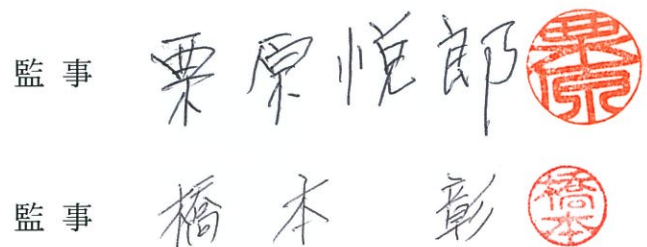 監事 栗原悦郎 栗原
監事 橋本 彰 橋本